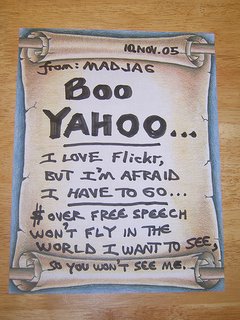 10.NOV.05
from: MADJAG
BOO
YAHOO...
I LOVE Flickr,
BUT I'M AFRAID
I HAVE TO GO...
$ OVER FREE SPEECH
WON'T FLY IN THE
WORLD I WANT TO SEE,
SO YOU WON'T SEE ME.